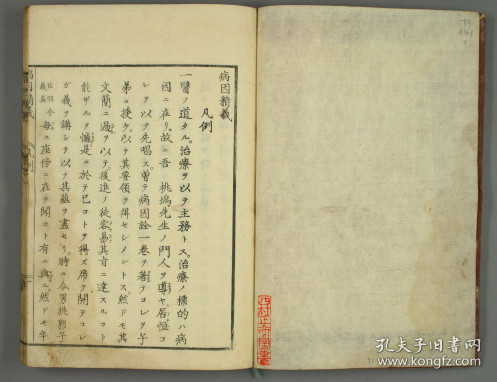 病因精義
凡例
一醫ノ道タル。治療ヲ以テ主務トス。治療ノ標的ハ病
因ニ在リ。故ニ吾 桃塢先生ノ門人ヲ導ク。居恒コ
レヲ以テ先唱ス。曽テ病因詮一卷ヲ著テコレヲ子
弟ニ授ケ。以テ其要領ヲ得セシメントス。然ドモ其
文簡ニ過ルヲ以テ。後進ノ徒容易其旨ニ達スルコト
能ザルヲ憾ム。是ニ於テ已コトヲ得ズ。席ヲ開キコレ
ガ義ヲ講シ以テ其蘊ヲ盡セリ。時ニ令男桃郭子
毎ニ座傍ニ在テ聞コト有ニ與ル。然ドモ年
病因精義
凡例
西村正
圖書
孔夫子旧书网
www.kongfz.com